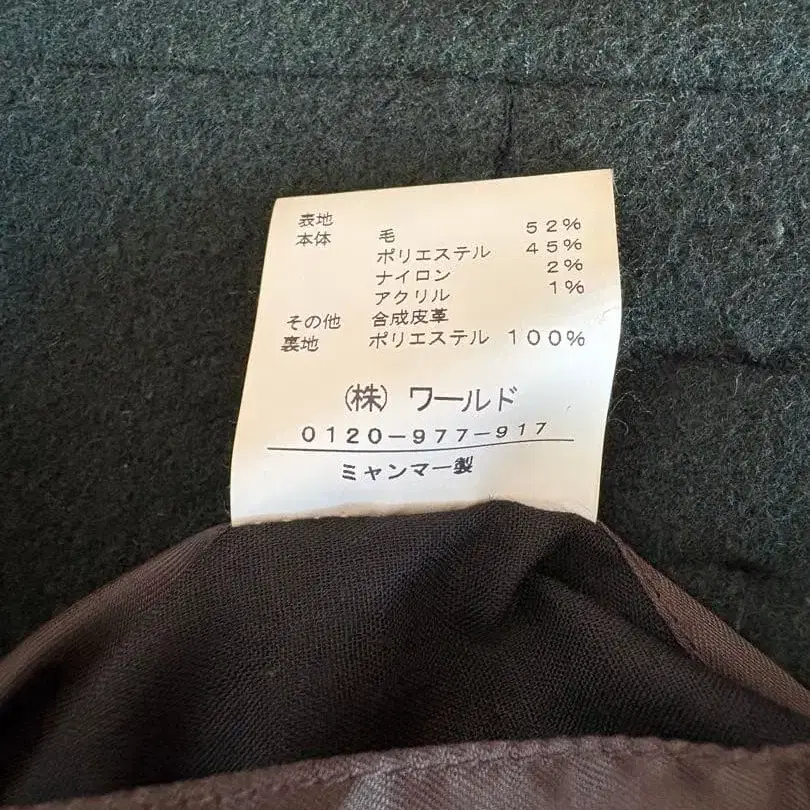 表地
本体 毛 52%
ポリエステル 45%
ナイロン 2%
アクリル 1%
その他 合成皮革
裏地 ポリエステル 100%
(株) ワールド
0120-977-917
ミャンマー製